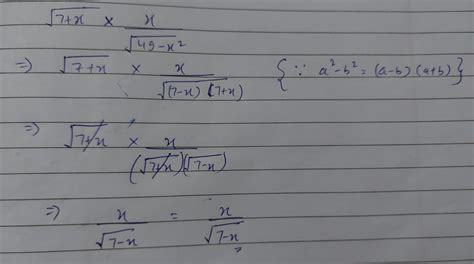 √(7+x) × x/√(49-x²)
⇒ √(7+x) × x/√((7-x)(7+x)) {∵ a²-b² = (a-b)(a+b)}
⇒ √(7+x) × x/(√(7+x))(√(7-x))
⇒ x/√(7-x) = x/√(7-x)